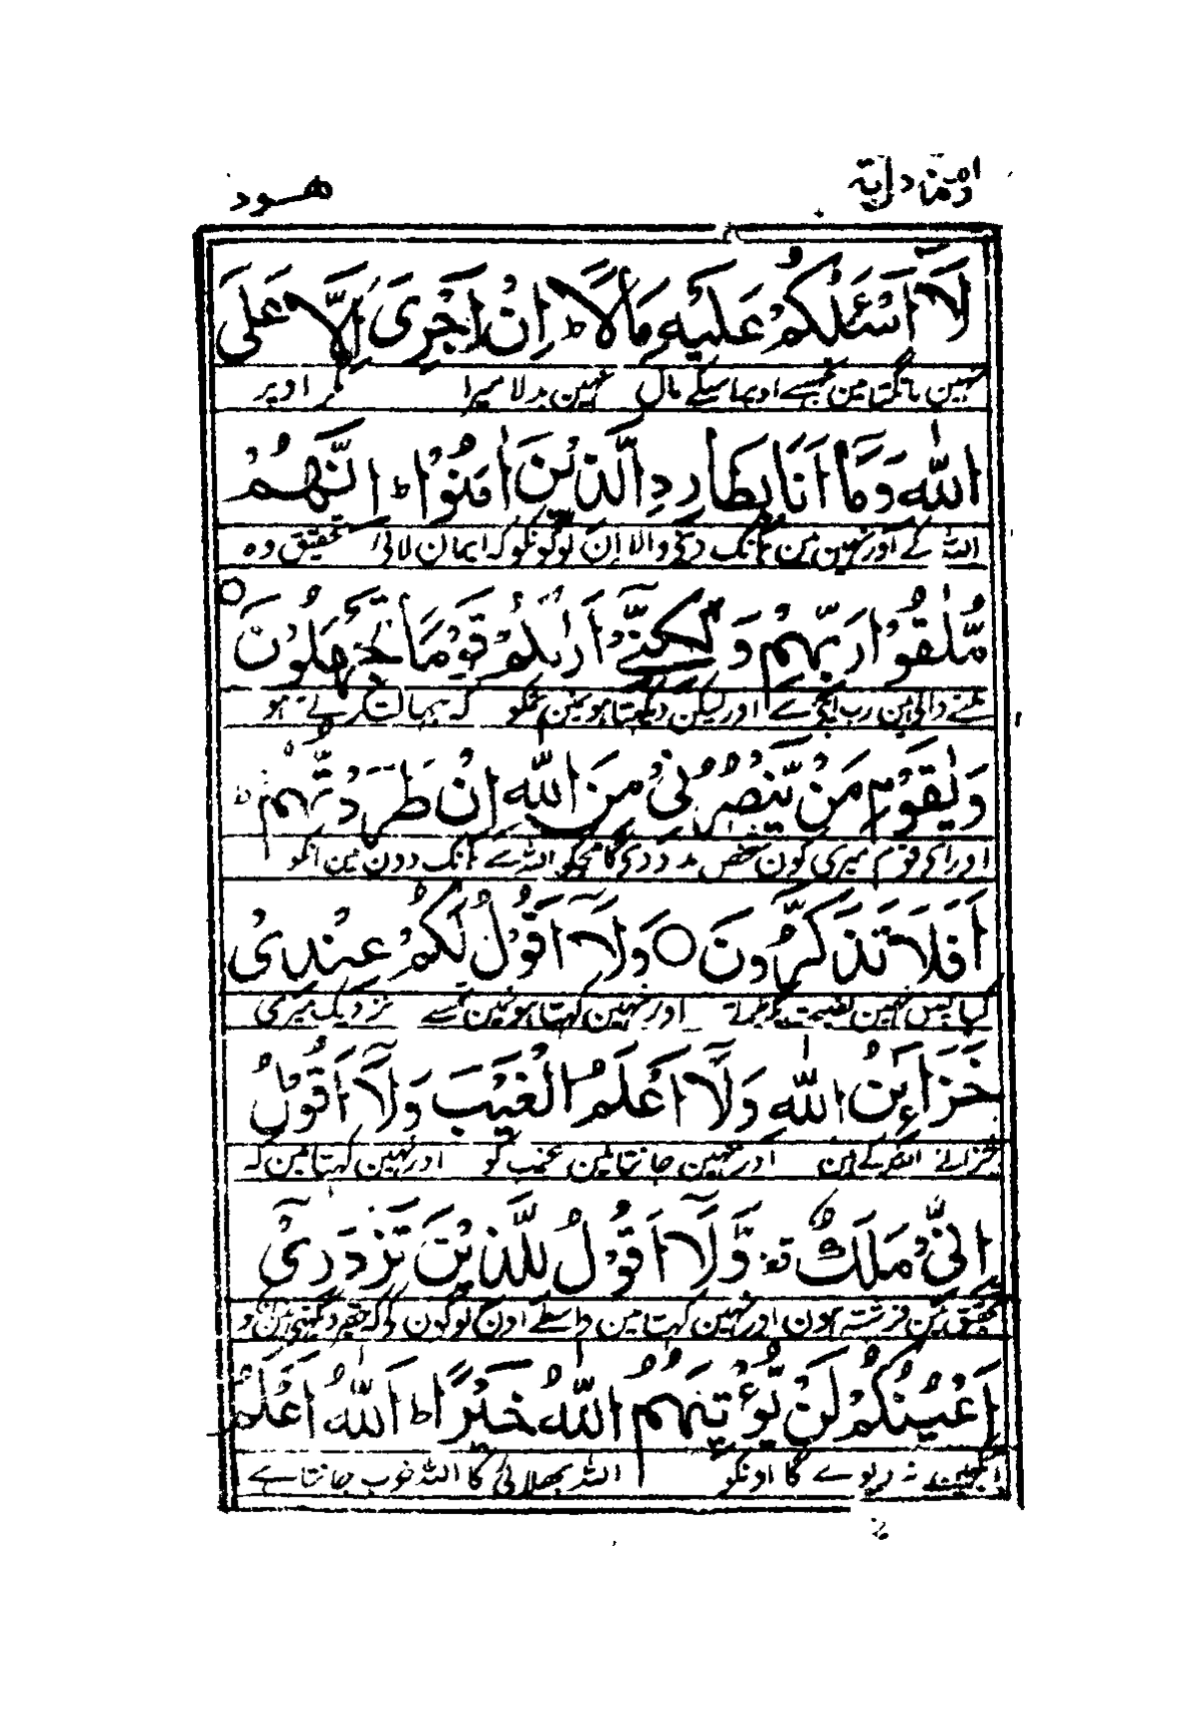 ومامن دابة
هود
لَآ اَسْـَٔلُكُمْ عَلَيْهِ مَالًا ؕ اِنْ اَجْرِىَ اِلَّا عَلَى
نہین مانگتا مین تمسے اوپر اسکے مال نہین بدلا میرا مگر اوپر
اللّٰهِ وَمَآ اَنَا بِطَارِدِ الَّذِيْنَ اٰمَنُوْا ؕ اِنَّهُمْ
اللہ کے اور نہین مین ہانک دینے والا ان لوگونکو کہ ایمان لائے تحقیق وہ
مُّلٰقُوْا رَبِّهِمْ وَلٰكِنِّىْٓ اَرٰىكُمْ قَوْمًا تَجْهَلُوْنَ ○
ملنے والے ہین رب اپنے سے اور لیکن دیکھتا ہون مین تمکو کہ جہالت کرتے ہو
وَيٰقَوْمِ مَنْ يَّنْصُرُنِىْ مِنَ اللّٰهِ اِنْ طَرَدْتُّهُمْ ؕ
اور اے قوم میری کون شخص مدد دیگا مجھکو اللہ سے ہانک دون مین انکو
اَفَلَا تَذَكَّرُوْنَ ○ وَلَآ اَقُوْلُ لَكُمْ عِنْدِىْ
کیا پس نہین نصیحت پکڑتے اور نہین کہتا ہون مین تمسے نزدیک میری
خَزَآءِنُ اللّٰهِ وَلَآ اَعْلَمُ الْغَيْبَ وَلَآ اَقُوْلُ
خزانے اللہ کے ہین اور نہین جانتا مین غیب کو اور نہین کہتا مین کہ
اِنِّىْ مَلَكٌ قف وَّلَآ اَقُوْلُ لِلَّذِيْنَ تَزْدَرِىْٓ
تحقیق مین فرشتہ ہون اور نہین کہتا مین واسطے اون لوگون کے کہ حقیر دیکھتی ہین
اَعْيُنُكُمْ لَنْ يُّؤْتِيَهُمُ اللّٰهُ خَيْرًا ؕ اَللّٰهُ اَعْلَمُ
آنکھین نہ دیوے گا اونکو اللہ بھلائی کا اللہ خوب جانتا ہے